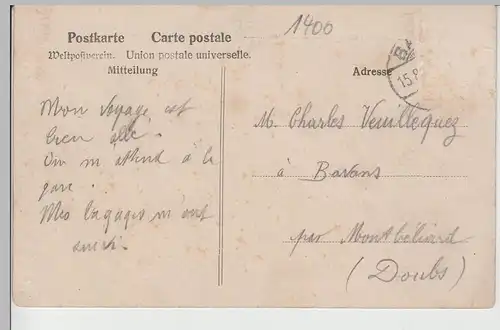 1400
Postkarte Carte postale
Weltpostverein. Union postale universelle.
Mitteilung
Adresse
15.8
Mon voyage est
bien allé.
On m'attend à la
gare.
Mes bagages m'ont
suivi.
M. Charles Veuillequez
à Bavans
par Montbéliard
(Doubs)